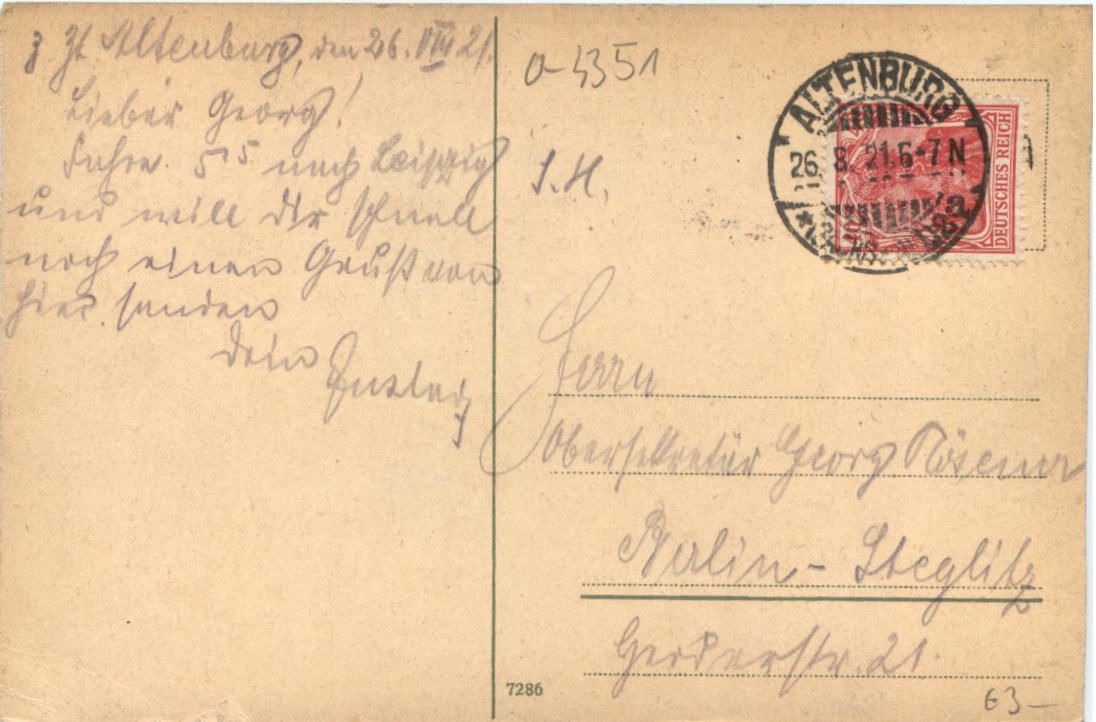 z Zt Altenburg, den 26. VIII 21.
Lieber Georg!
Fahre 5⁵ nach Leipzig
und will Dir schnell
noch einen Gruß von
hier senden
Dein
Gustav
a-4351
S.H.
ALTENBURG
26 8 21 6-7 N
DEUTSCHES REICH
Herrn
Obersekretär Georg
Berlin-Steglitz
21.
7286
63-